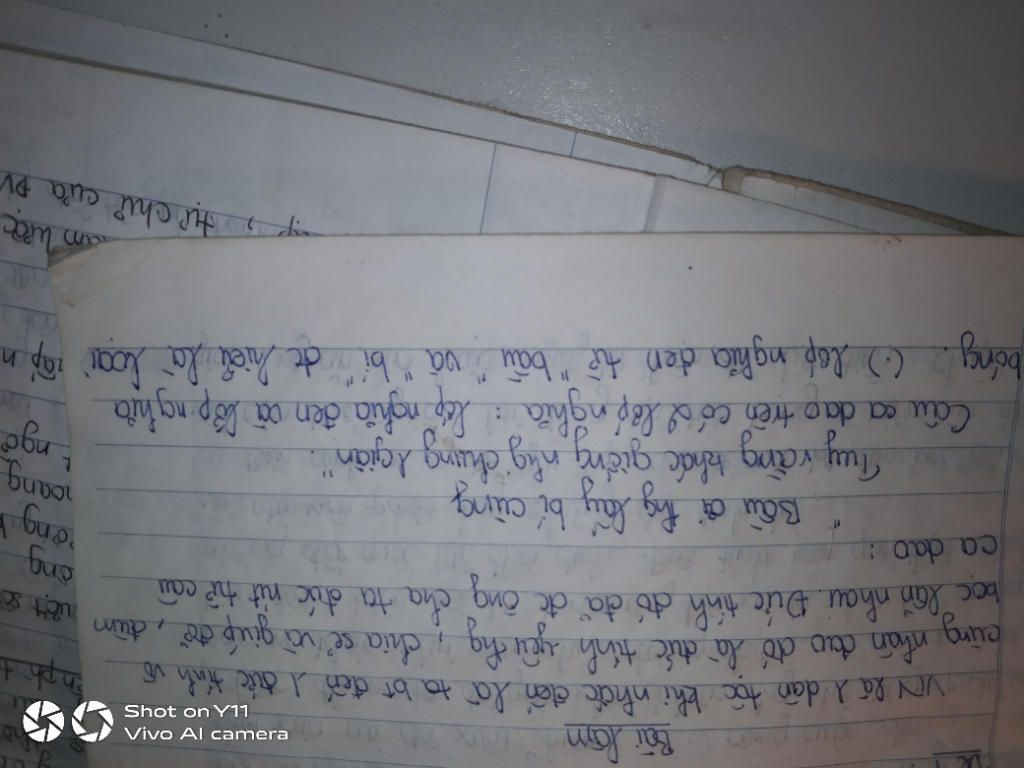 Bài làm
VN là 1 dân tộc khi nhắc đến là ta bt đến 1 đức tính vô
cùng nhân đạo đó là đức tính yêu thg, chia sẻ và giúp đỡ, đùm
bọc lẫn nhau. Đức tính đó đã đc ông cha ta đúc rút từ câu
ca dao:
"Bầu ơi thg lấy bí cùng
Tuy rằng khác giống nhg chung 1 giàn".
Câu ca dao trên có 2 lớp nghĩa: lớp nghĩa đen và lớp nghĩa
bóng. (.) Lớp nghĩa đen từ "bầu" và "bí" đc hiểu là loài
tự chủ của ĐV
Shot on Y11
Vivo AI camera